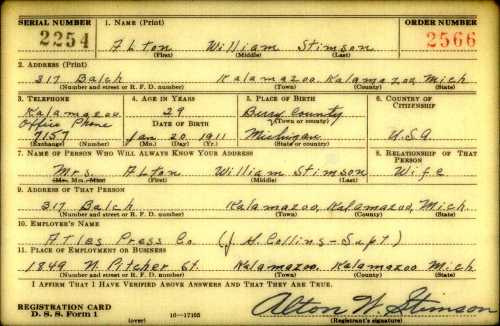 SERIAL NUMBER 1. NAME (Print) ORDER NUMBER
2254 Alton William Stimson 2566
(First) (Middle) (Last)
2. ADDRESS (Print)
317 Balch Kalamazoo, Kalamazoo, Mich
(Number and street or R. F. D. number) (Town) (County) (State)
3. TELEPHONE 4. AGE IN YEARS 5. PLACE OF BIRTH 6. COUNTRY OF CITIZENSHIP
Kalamazoo 29 County
Office Phone DATE OF BIRTH (Town or county)
7157 Jan 20, 1911 Michigan U.S.A
(Exchange) (Number) (Mo.) (Day) (Yr.) (State or country)
7. NAME OF PERSON WHO WILL ALWAYS KNOW YOUR ADDRESS 8. RELATIONSHIP OF THAT PERSON
Mrs. Alton William Stimson Wife
(Mr., Mrs., Miss) (First) (Middle) (Last)
9. ADDRESS OF THAT PERSON
317 Balch Kalamazoo, Kalamazoo, Mich.
(Number and street or R. F. D. number) (Town) (County) (State)
10. EMPLOYER'S NAME
Atlas Press Co (J. H. Collins - Supt)
11. PLACE OF EMPLOYMENT OR BUSINESS
1849 N. Pitcher St. Kalamazoo. Kalamazoo Mich
(Number and street or R. F. D. number) (Town) (County) (State)
I AFFIRM THAT I HAVE VERIFIED ABOVE ANSWERS AND THAT THEY ARE TRUE.
REGISTRATION CARD
D. S. S. Form 1 (over) 16—17105 Alton W. Stimson
(Registrant's signature)